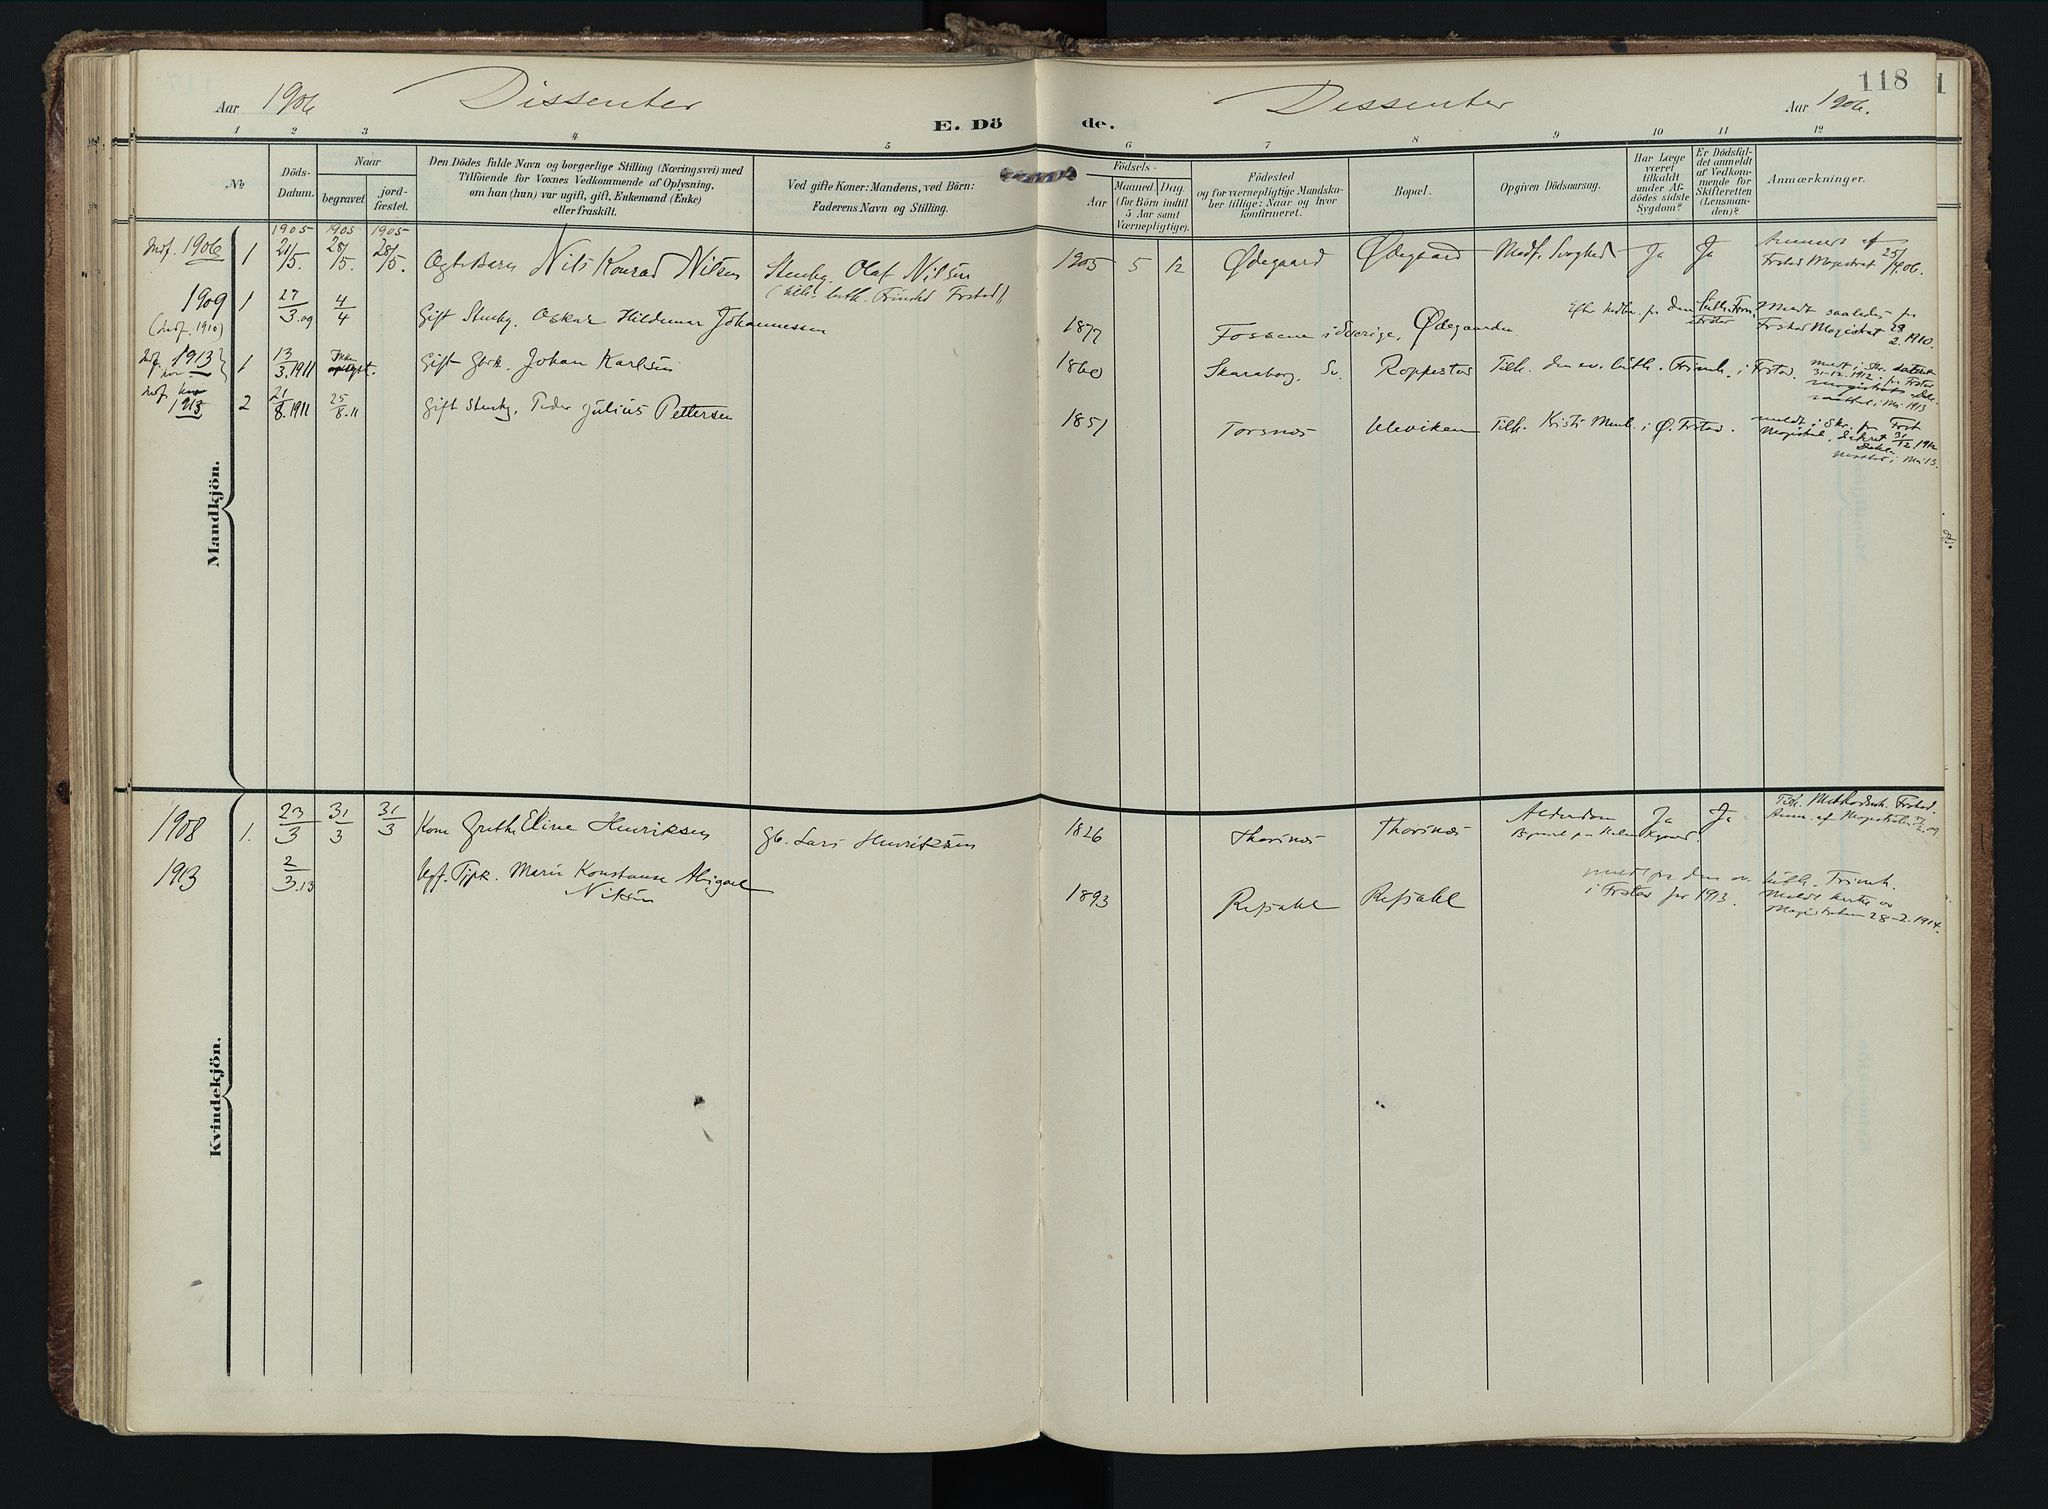 Aar 1906 Dissenter
E. Döde.
Dissenter Aar 1906.
118
1 2 3 4 5 6 7 8 9 10 11 12
No.
Döds-Datum.
Naar
begravet.
jord-fæstet.
Den Dödes fulde Navn og borgerlige Stilling (Næringsvei) med
Tilföiende for Voxnes Vedkommende af Oplysning,
om han (hun) var ugift, gift, Enkemand (Enke)
eller fraskilt.
Ved gifte Koner: Mandens, ved Börn:
Faderens Navn og Stilling.
Födsels-
Aar
Maaned. Dag.
(for Börn indtil
5 Aar samt
Værnepligtige).
Födested
og for værnepligtige Mandska-
ber tillige: Naar og hvor
konfirmeret.
Bopæl.
Opgiven Dödsaarsag.
Har Læge
været
tilkaldt
under Af-
dödes sidste
Sygdom?
Er Dödsfal-
det anmeldt
af Vedkom-
mende for
Skifteretten
(Lensman-
den)?
Anmærkninger.
Mandkjön.
1905 1905 1905
Indf. 1906 1 21/5. 28/5. 28/5. Ægte Barn Nils Konrad Nilsen Stenhg. Olaf Nilsen 1905 5 12 Ødegaard Ødegaard Medf. Svaghed Ja Ja
Frstad Magistrat 25/4.06.
1909 1 27/3.09 4/4 Gift Stenhg. Oskar Hildemar Johannessen 1877 Fossene i Sverige. Ødegaarden
(indf. 1910)
Meldt saaledes fra
Frstad Magistrat 28/2.1910.
Indf. 1913 1 13/3.1911 Ikke oplyst. Gift Johan Karlsen 1860 Skaraborg. Sv. Roppestad Tilh. den ev. luth. Frimh. i Frstad.
31-12.1912
i Mai 1913
Indf. 1913 2 21/8.1911 25/8.11 Gift Stenhg. Peder Julius Pettersen 1851 Torsnes Uleviken Tilh. Kristi Menh. i Ø. Frstad.
meldt i Skr. fra Frst
Magistrat, 31/12.1912
Kvindekjön.
1908 1. 23/3 31/3 31/3 Kone Grethe Eline Henriksen Gb. Lars Henriksen 1826 Thorsnes Thorsnes Alderdom Ja Ja Tilh. Methodistk. Frstad.
Anm. af Magistraten
1913 2/3.13 Ugt. Tjpk. Marie Konstanse Abigael
Nilsen
1893 Refsahl Refsahl
meldt fra den ev. luth. Frimh.
i Frstad for 1913.
Magistraten 28-2.1914.